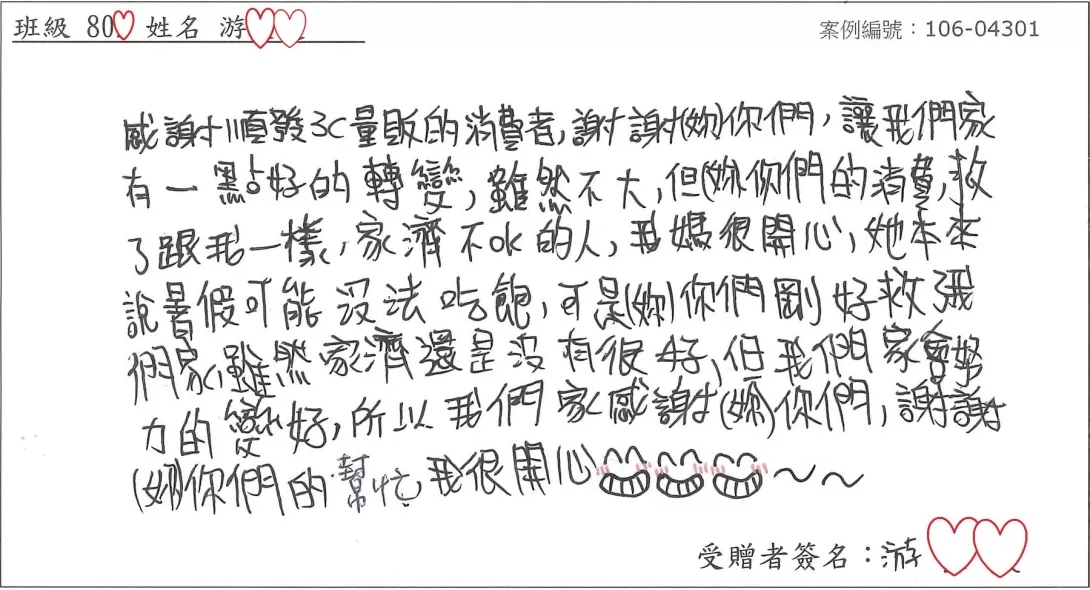 班級 80 姓名 游
案例編號：106-04301
感謝順發3C量販的消費者,謝謝(妳)你們,讓我們家
有一點好的轉變,雖然不大,但(妳)你們的消費,救
了跟我一樣,家濟不ok的人,我媽很開心,她本來
說暑假可能沒法吃飽,可是(妳)你們剛好救了我
們家,雖然家濟還是沒有很好,但我們家會努
力的變好,所以我們家感謝(妳)你們,謝謝
(妳)你們的幫忙我很開心～～
受贈者簽名：游